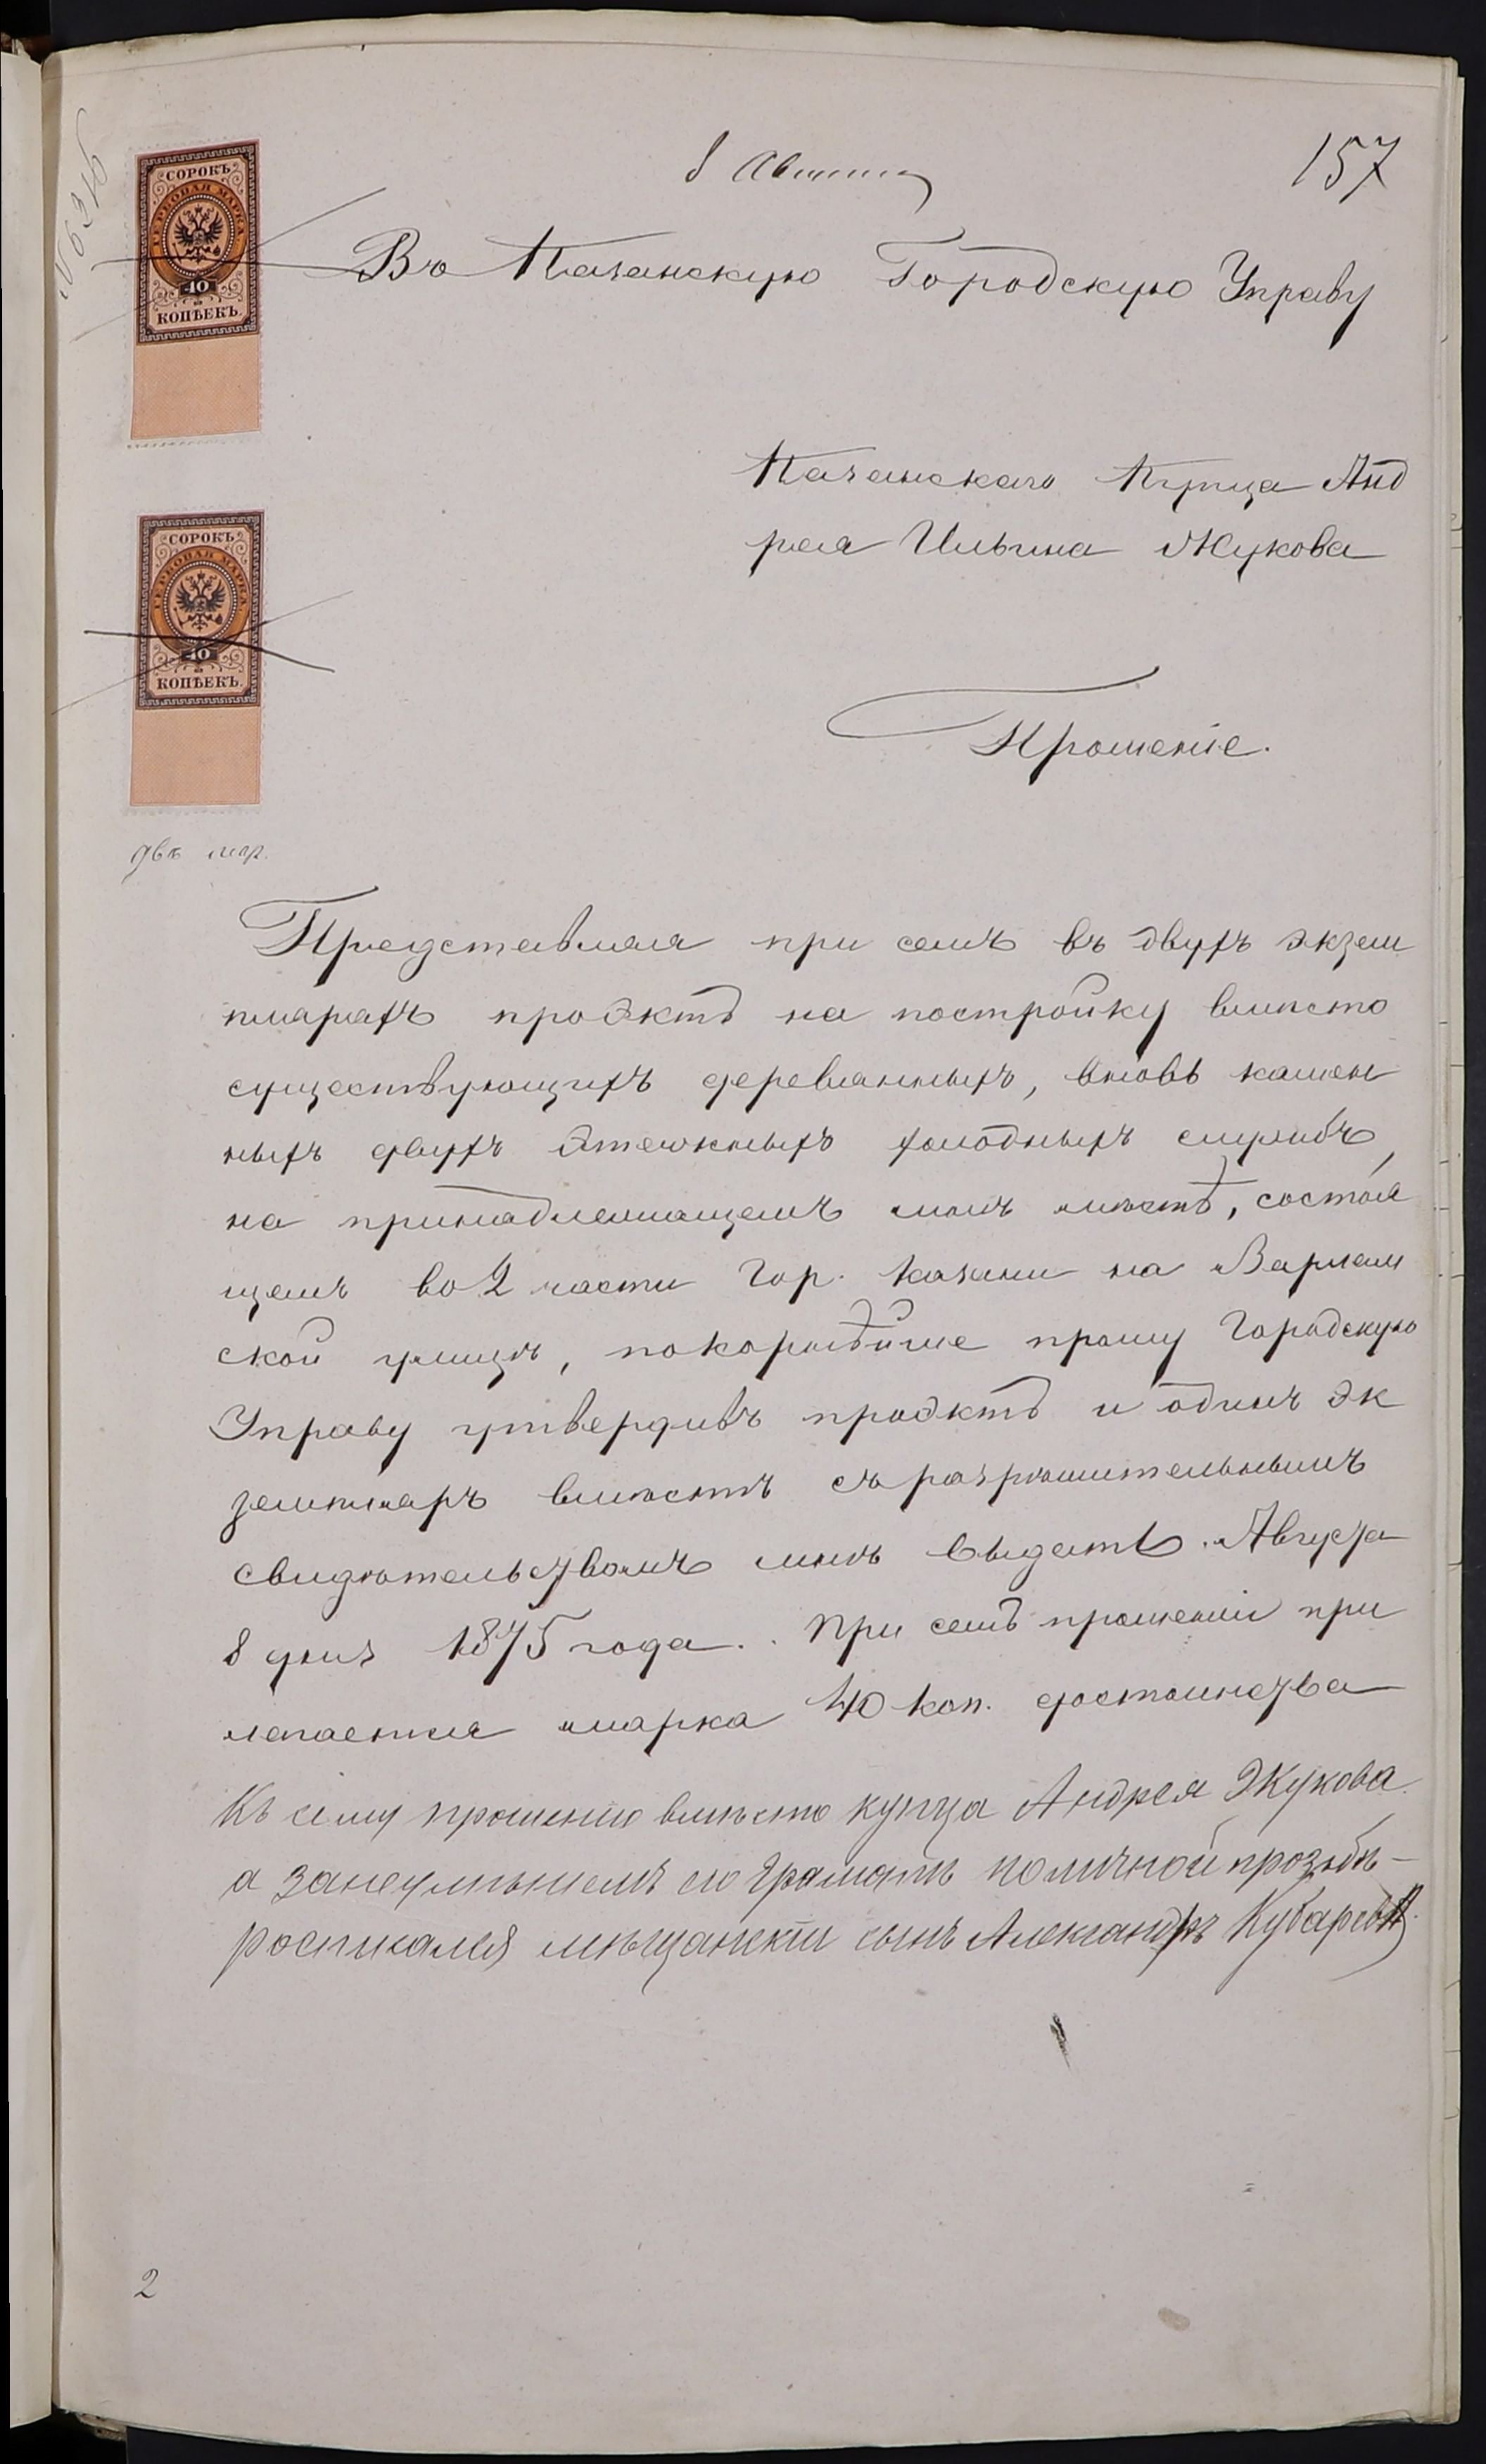 № 6216
8 Августа
157
СОРОКЪ
ГЕРБОВАЯ МАРКА
40
КОПѢЕКЪ.
Въ Казанскую Городскую Управу
Казанскаго Купца Анд
рея Ильина Жукова
СОРОКЪ
ГЕРБОВАЯ МАРКА
40
КОПѢЕКЪ.
Прошеніе.
двѣ мар.
Представляя при семъ въ двухъ экзем
плярахъ проэктъ на постройку вмѣсто
существующихъ деревянныхъ, вновь камен
ныхъ двухъ этажныхъ холодныхъ службъ,
на принадлежащемъ мнѣ мѣстѣ, состоя
щемъ во 2 части гор. Казани на Варлам
ской улицѣ, покорнѣйше прошу Городскую
Управу утвердивъ проэктъ и одинъ эк
земпляръ вмѣстѣ съ разрѣшительнымъ
свидѣтельствомъ мнѣ выдать. Августа
8 дня 1875 года. При семъ прошеніи при
лагается марка 40 коп. достоинства
Къ сему прошенію вмѣсто купца Андрея Жукова
а занеумѣнiемъ его грамотѣ поличной прозьбѣ
росписался мѣщанскiй сынъ Александръ Кубаревъ
2